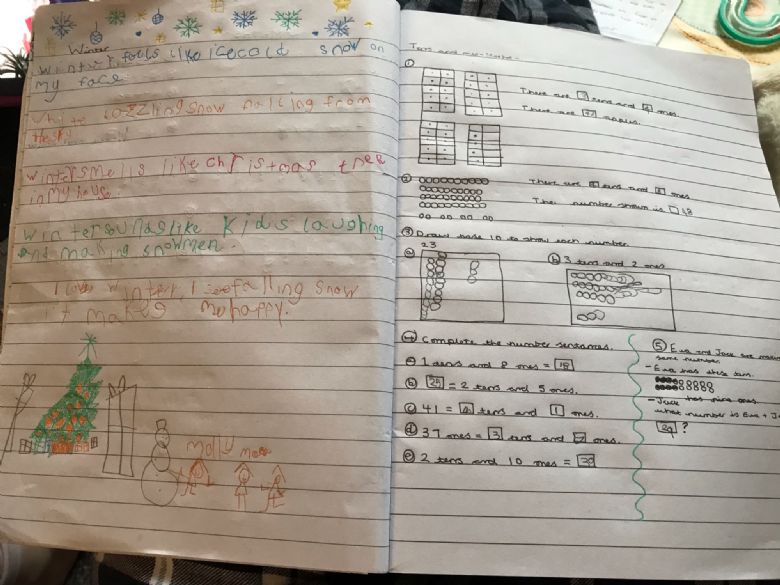 Winter
Winter feels like icecold snow on
my face
white snow falling from
the sky
winter smells like christmas tree
in my house.
winter sounds like kids laughing
and making snowmen.
I love winter, I see falling snow
it makes me happy.
Molly
Tens and
①
There are tens and 4 ones.
There are apples.
②
There are tens and ones
The number shown is
③ Draw base 10 to show each number.
23
ⓐ
ⓑ 3 tens and 2 ones
④ Complete the number sentences.
ⓐ 1 tens and 8 ones = 18
ⓑ 25 = 2 tens and 5 ones.
ⓒ 41 = 4 tens and 1 ones.
ⓓ 37 ones = 3 tens and 7 ones.
ⓔ 2 tens and 10 ones =
⑤ Eva and Jack are
same number.
- Eva has these
- Jack has nine ones.
what number is Eva + J
?